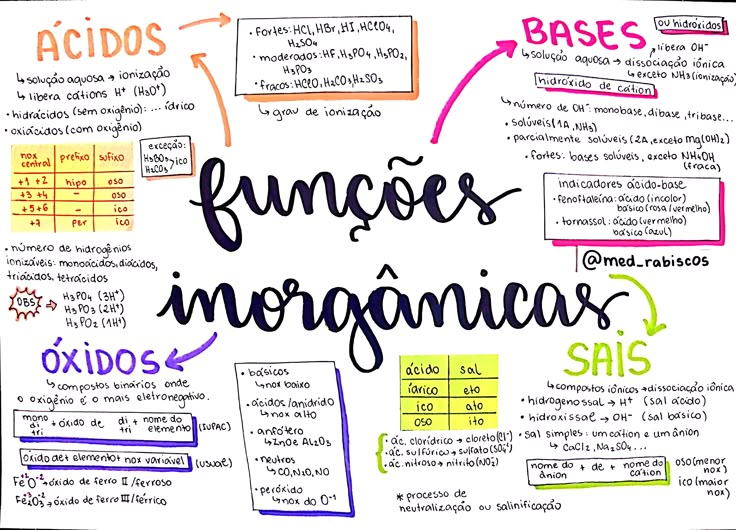 ÁCIDOS
↳ solução aquosa → ionização
↳ libera cátions H⁺ (H₃O⁺)
• hidrácidos (sem oxigênio): ... ídrico
• oxiácidos (com oxigênio)
nox central | prefixo | sufixo
+1 +2 | hipo | oso
+3 +4 | - | oso
+5 +6 | - | ico
+7 | per | ico
exceção:
H₃BO₃
H₂CO₃ > ico
• número de hidrogênios
ionizáveis: monoácidos, diácidos,
triácidos, tetrácidos
OBS → H₃PO₄ (3H⁺)
H₃PO₃ (2H⁺)
H₃PO₂ (1H⁺)
• fortes: HCl, HBr, HI, HClO₄,
H₂SO₄
• moderados: HF, H₃PO₄, H₃PO₂,
H₃PO₃
• fracos: HClO, H₂CO₃, H₂SO₃
↳ grau de ionização
BASES
ou hidróxidos
↗ libera OH⁻
↳ solução aquosa → dissociação iônica
↳ exceto NH₃ (ionização)
hidróxido de cátion
↳ número de OH⁻: monobase, dibase, tribase...
• solúveis (1A, NH₃)
• parcialmente solúveis (2A, exceto Mg(OH)₂)
• fortes: bases solúveis, exceto NH₄OH
(fraca)
indicadores ácido-base
• fenoftaleína: ácido (incolor)
básico (rosa/vermelho)
• tornassol: ácido (vermelho)
básico (azul)
@med_rabiscos
funções
inorgânicas
ÓXIDOS
↳ compostos binários onde
o oxigênio é o mais eletronegativo.
mono di tri + óxido de di tri + nome do elemento (IUPAC)
óxido de + elemento + nox variável (USUAL)
Fe⁺²O⁻² → óxido de ferro II / ferroso
Fe₂⁺³O₃⁻² → óxido de ferro III / férrico
• básicos
↳ nox baixo
• ácidos / anidrido
↳ nox alto
• anfótero
↳ ZnO e Al₂O₃
• neutros
↳ CO, N₂O, NO
• peróxido
↳ nox do O⁻¹
ácido | sal
ídrico | eto
ico | ato
oso | ito
• ác. clorídrico → cloreto (Cl⁻)
• ác. sulfúrico → sulfato (SO₄⁻²)
• ác. nitroso → nitrito (NO₂⁻)
* processo de
neutralização ou salinificação
SAIS
↳ compostos iônicos → dissociação iônica
• hidrogenossal → H⁺ (sal ácido)
• hidroxissal → OH⁻ (sal básico)
• sal simples: um cátion e um ânion
↳ CaCl₂, Na₂SO₄...
nome do ânion + de + nome do cátion
oso (menor nox)
ico (maior nox)